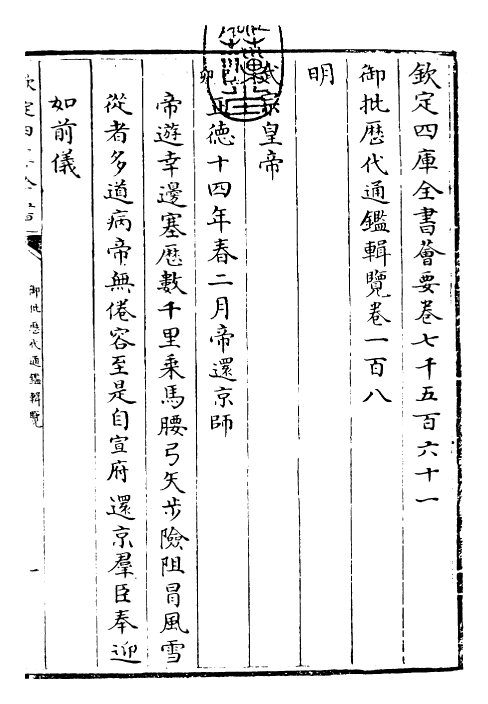 欽定四庫全書薈要卷七千五百六十一
御批歴代通鑑輯覽卷一百八
明
武宗皇帝
卯 正德十四年春二月帝還京師
帝遊幸邊塞歴數千里乗馬腰弓矢歩險阻冒風雪
從者多道病帝無倦容至是自宣府還京羣臣奉迎
如前儀
欽定四庫全書
御批歴代通鑑輯覽
一